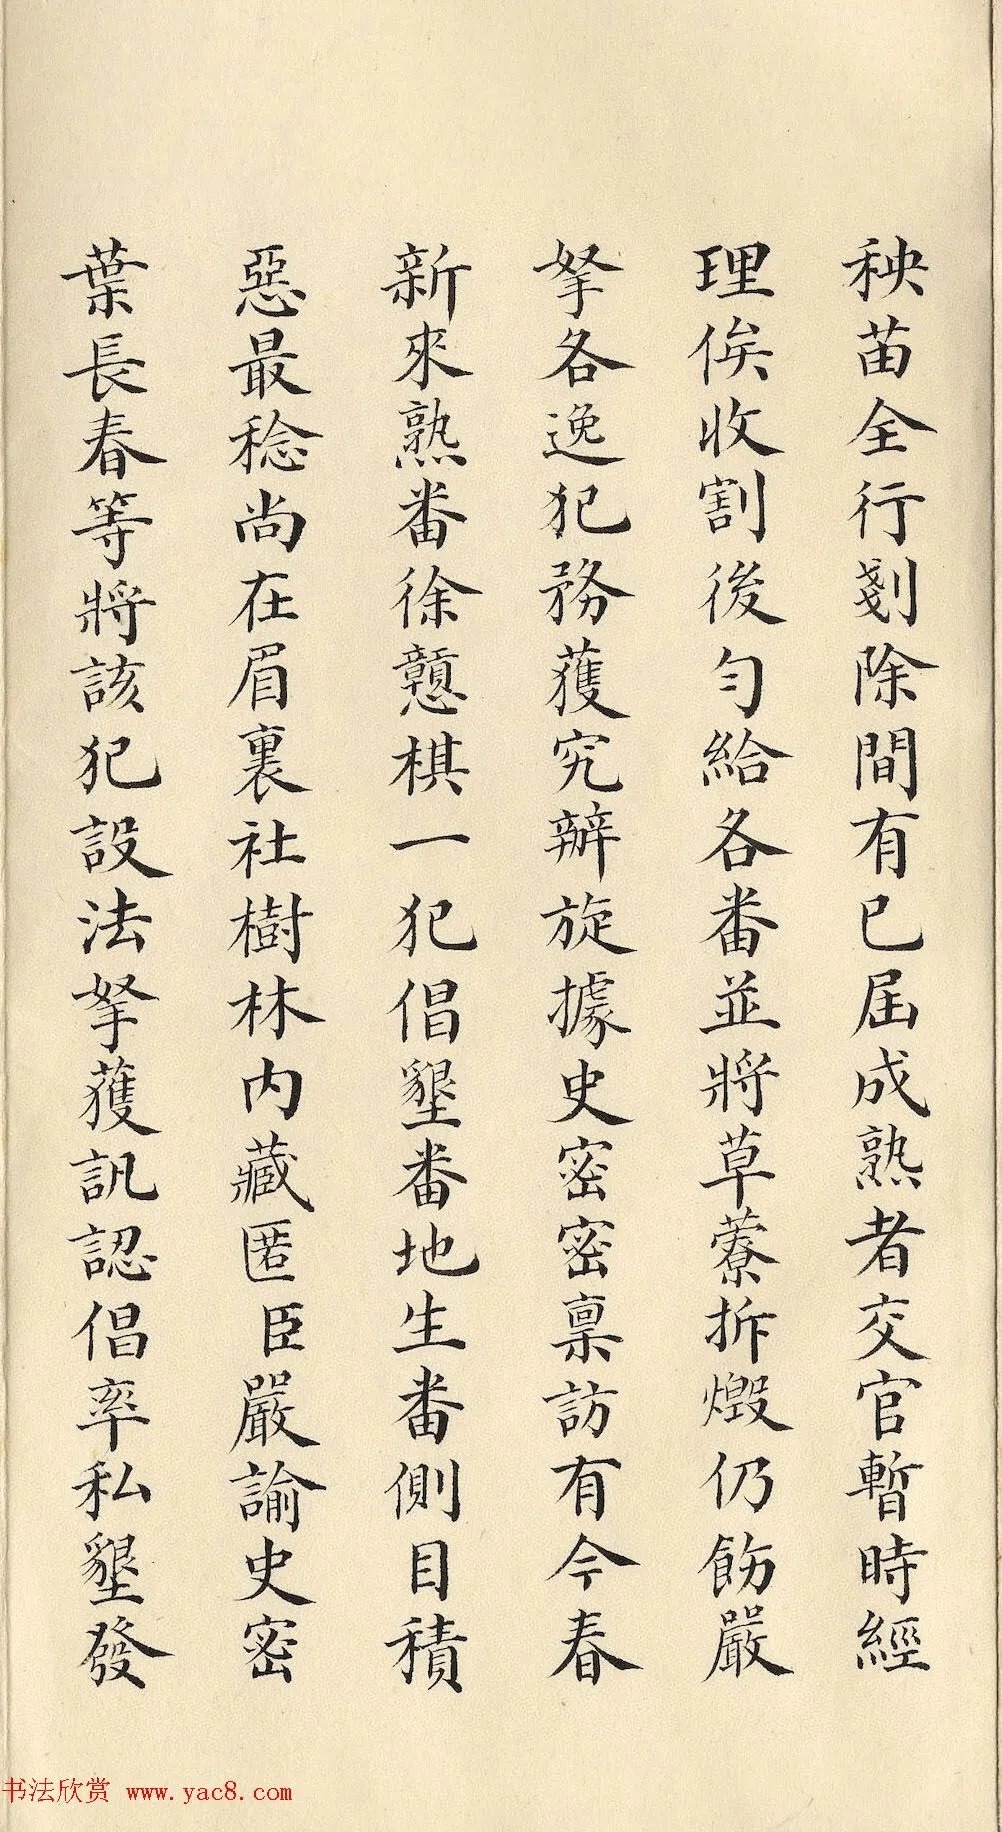 秧苗全行剗除間有已屆成熟者交官暫時經
理俟收割後勻給各番並將草藔拆燬仍飭嚴
拏各逸犯務獲究辦旋據史密密稟訪有今春
新來熟番徐戇棋一犯倡墾番地生番側目積
惡最稔尚在眉裏社樹林内藏匿臣嚴諭史密
葉長春等將該犯設法拏獲訊認倡率私墾發
书法欣赏 www.yac8.com